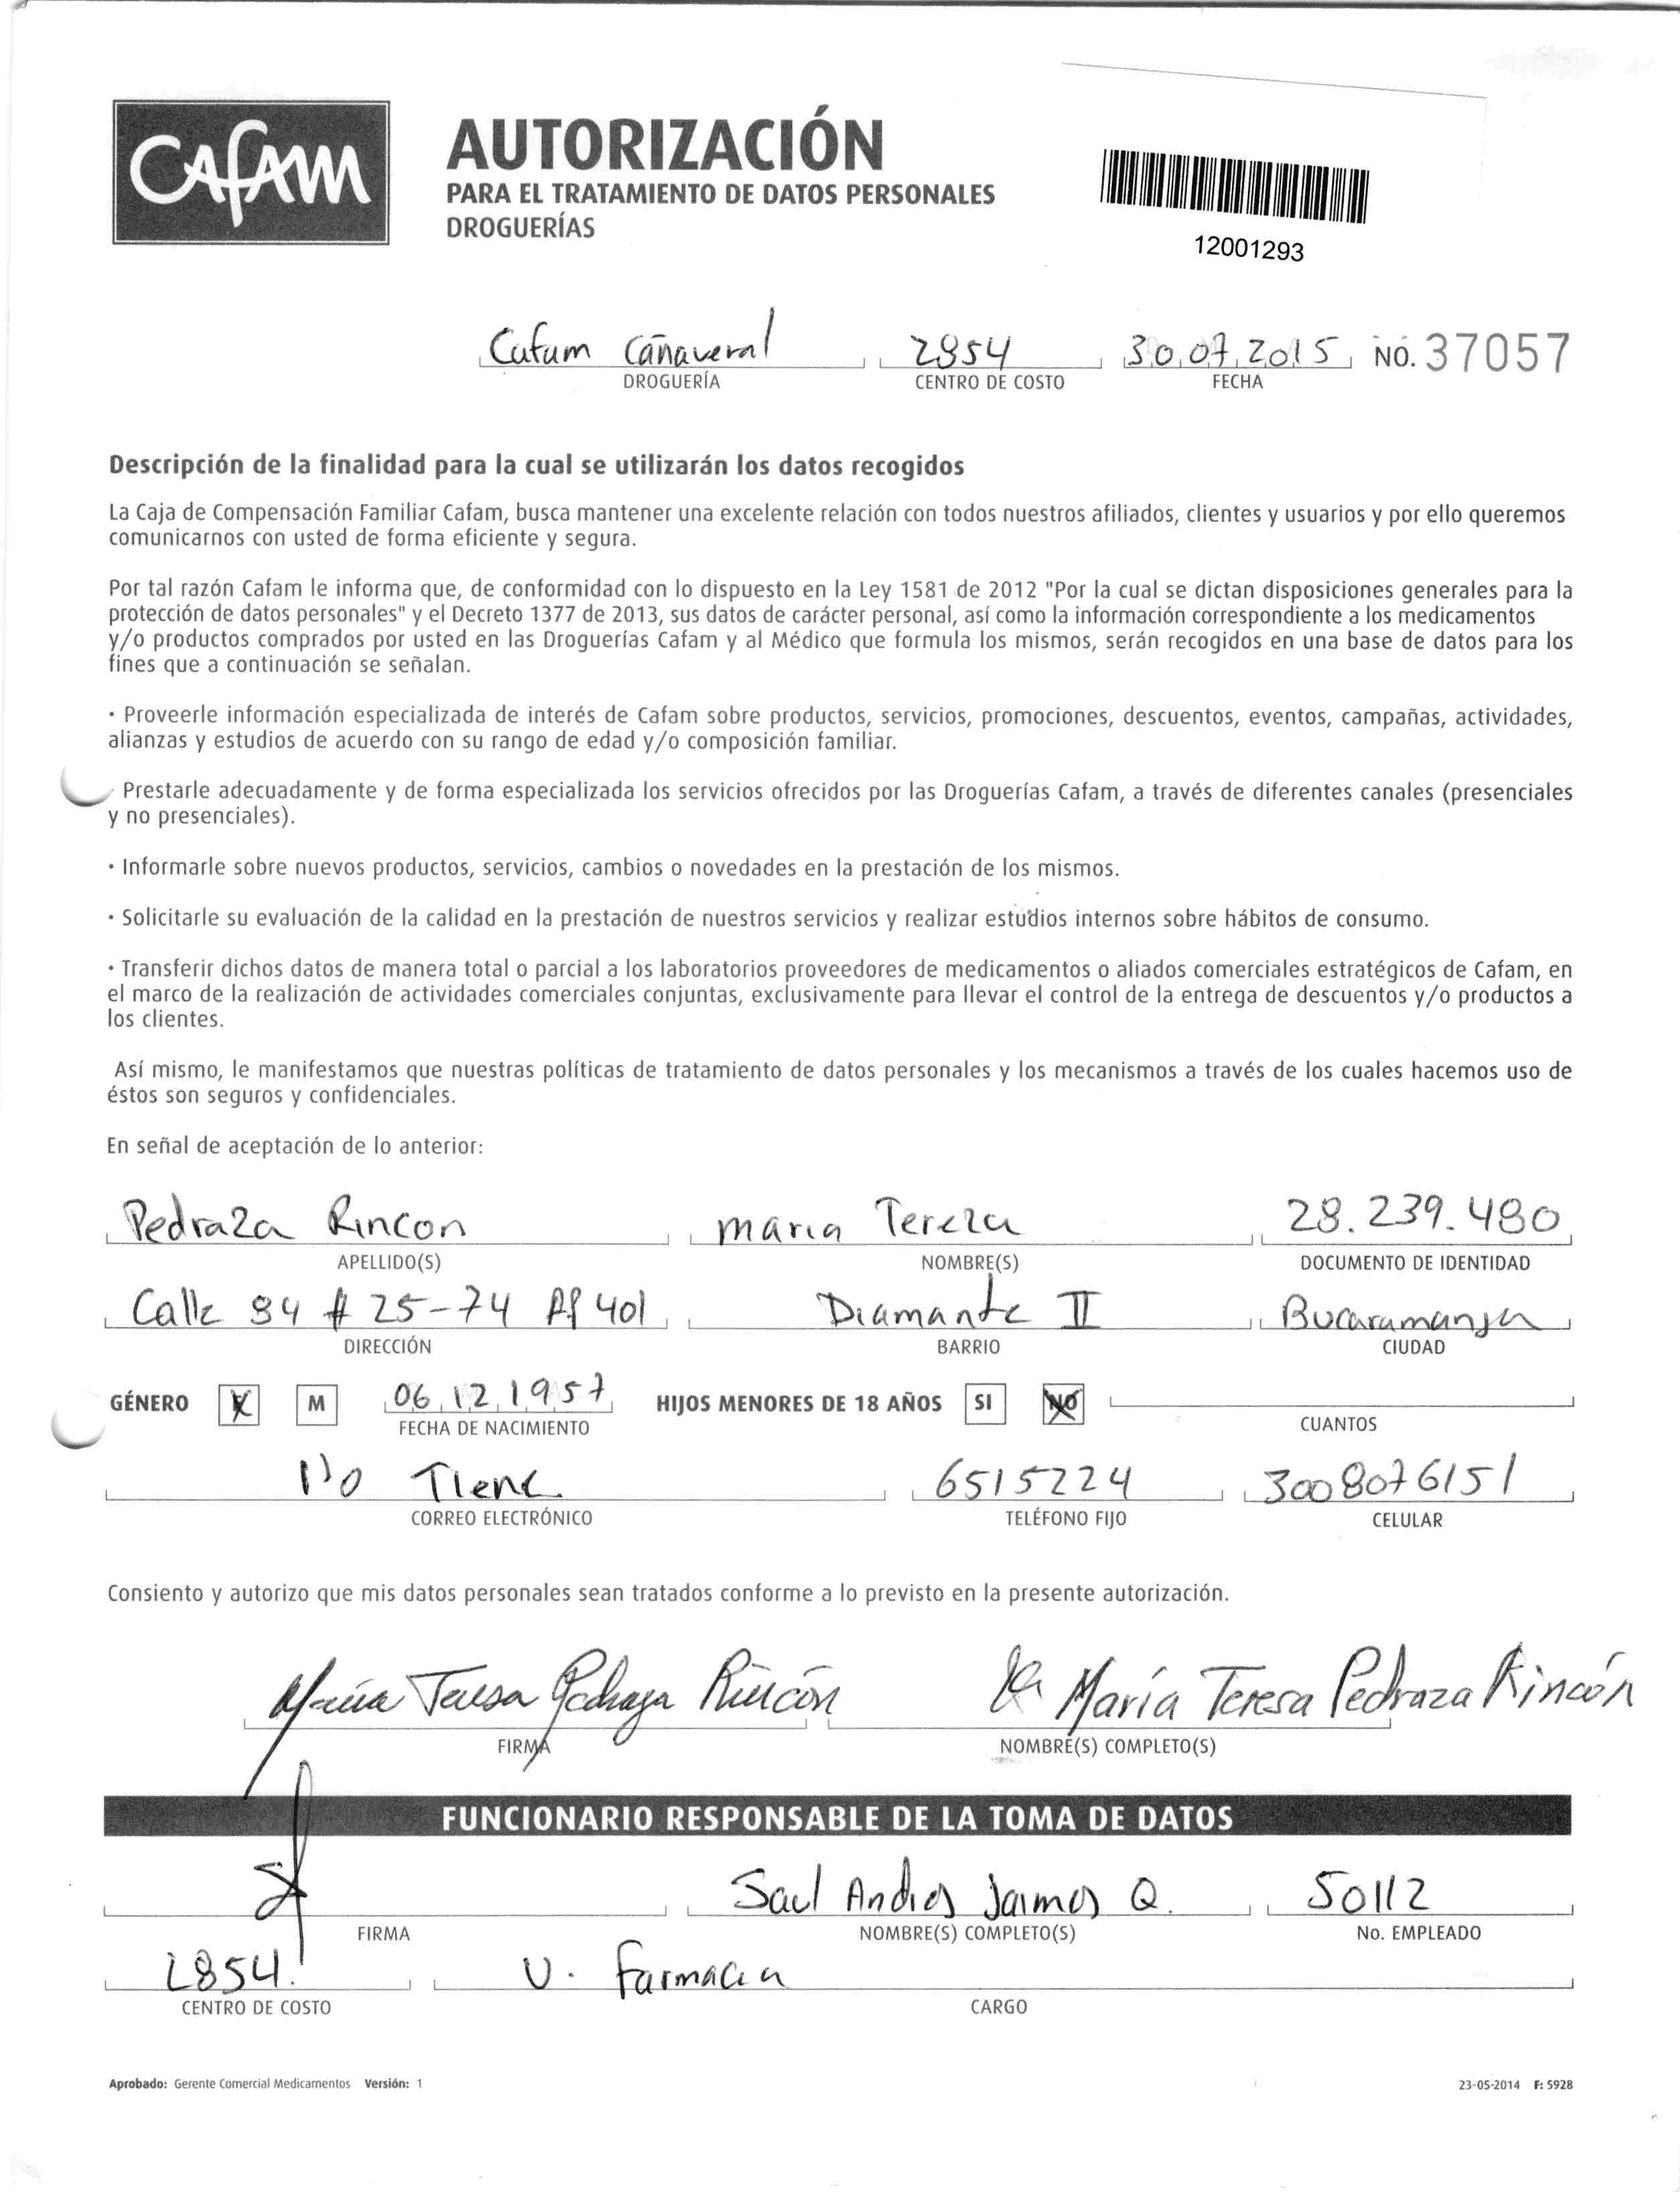 CAFAM
AUTORIZACIÓN
PARA EL TRATAMIENTO DE DATOS PERSONALES
DROGUERÍAS
12001293
Cafam Cañaveral 2854 30 07 2015 NO. 37057
DROGUERÍA CENTRO DE COSTO FECHA
Descripción de la finalidad para la cual se utilizarán los datos recogidos
La Caja de Compensación Familiar Cafam, busca mantener una excelente relación con todos nuestros afiliados, clientes y usuarios y por ello queremos
comunicarnos con usted de forma eficiente y segura.
Por tal razón Cafam le informa que, de conformidad con lo dispuesto en la Ley 1581 de 2012 "Por la cual se dictan disposiciones generales para la
protección de datos personales" y el Decreto 1377 de 2013, sus datos de carácter personal, así como la información correspondiente a los medicamentos
y/o productos comprados por usted en las Droguerías Cafam y al Médico que formula los mismos, serán recogidos en una base de datos para los
fines que a continuación se señalan.
· Proveerle información especializada de interés de Cafam sobre productos, servicios, promociones, descuentos, eventos, campañas, actividades,
alianzas y estudios de acuerdo con su rango de edad y/o composición familiar.
Prestarle adecuadamente y de forma especializada los servicios ofrecidos por las Droguerías Cafam, a través de diferentes canales (presenciales
y no presenciales).
· Informarle sobre nuevos productos, servicios, cambios o novedades en la prestación de los mismos.
· Solicitarle su evaluación de la calidad en la prestación de nuestros servicios y realizar estudios internos sobre hábitos de consumo.
· Transferir dichos datos de manera total o parcial a los laboratorios proveedores de medicamentos o aliados comerciales estratégicos de Cafam, en
el marco de la realización de actividades comerciales conjuntas, exclusivamente para llevar el control de la entrega de descuentos y/o productos a
los clientes.
Así mismo, le manifestamos que nuestras políticas de tratamiento de datos personales y los mecanismos a través de los cuales hacemos uso de
éstos son seguros y confidenciales.
En señal de aceptación de lo anterior:
Pedraza Rincon maria Tereza 28.239.480
APELLIDO(S) NOMBRE(S) DOCUMENTO DE IDENTIDAD
Calle 94 # 25-74 Ap 401 Diamante II Bucaramanga
DIRECCIÓN BARRIO CIUDAD
GÉNERO X M 06 12 1957 HIJOS MENORES DE 18 AÑOS SI NO
FECHA DE NACIMIENTO CUANTOS
No Tiene. 6515224 3008076151
CORREO ELECTRÓNICO TELÉFONO FIJO CELULAR
Consiento y autorizo que mis datos personales sean tratados conforme a lo previsto en la presente autorización.
María Teresa Pedraza Rincón María Teresa Pedraza Rincón
FIRMA NOMBRE(S) COMPLETO(S)
FUNCIONARIO RESPONSABLE DE LA TOMA DE DATOS
Saul Andres Jaimes Q. 50112
FIRMA NOMBRE(S) COMPLETO(S) No. EMPLEADO
2854. V. Farmacia
CENTRO DE COSTO CARGO
Aprobado: Gerente Comercial Medicamentos Versión: 1 23-05-2014 F: 5928